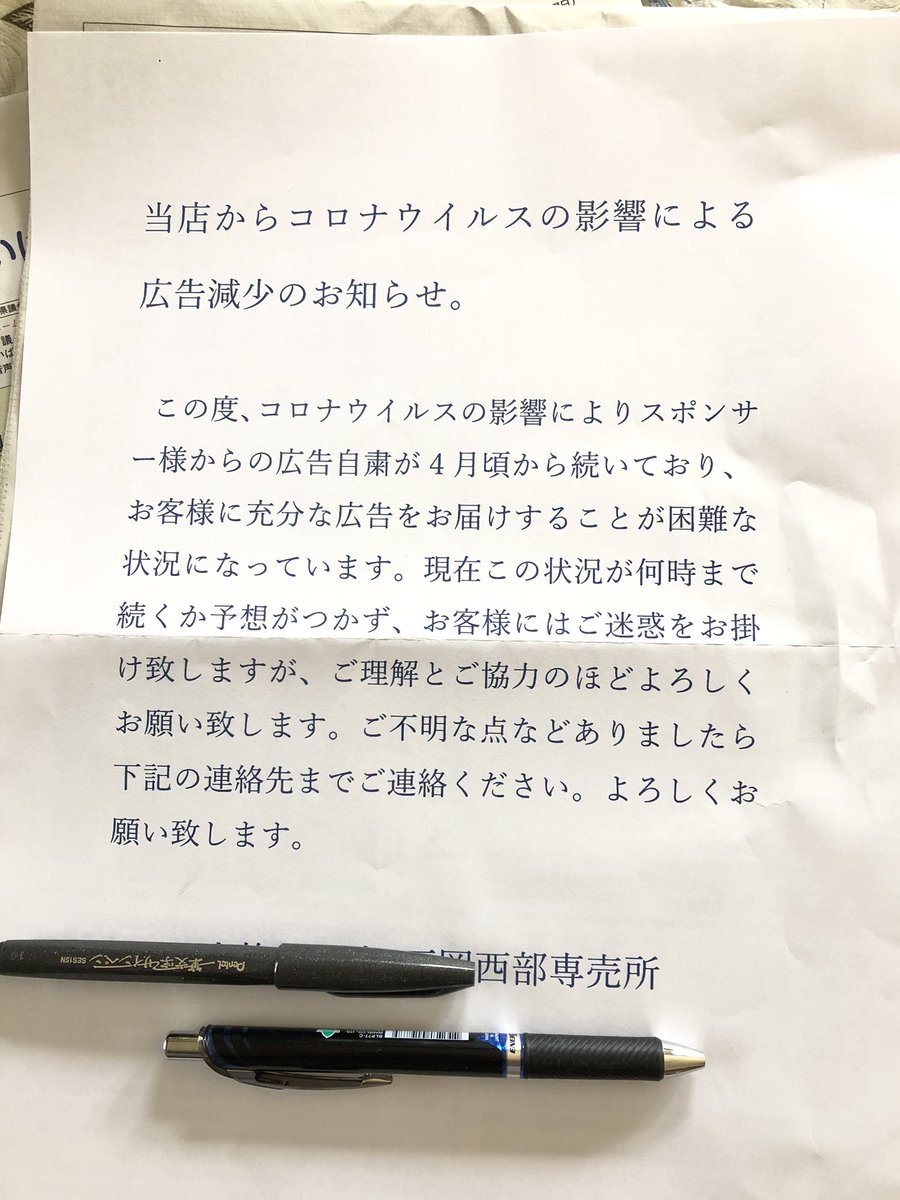 当店からコロナウイルスの影響による
広告減少のお知らせ。
この度、コロナウイルスの影響によりスポンサ
ー様からの広告自粛が４月頃から続いており、
お客様に充分な広告をお届けすることが困難な
状況になっています。現在この状況が何時まで
続くか予想がつかず、お客様にはご迷惑をお掛
け致しますが、ご理解とご協力のほどよろしく
お願い致します。ご不明な点などありましたら
下記の連絡先までご連絡ください。よろしくお
願い致します。
西部専売所
Pentel 筆文字サインペン SES15N